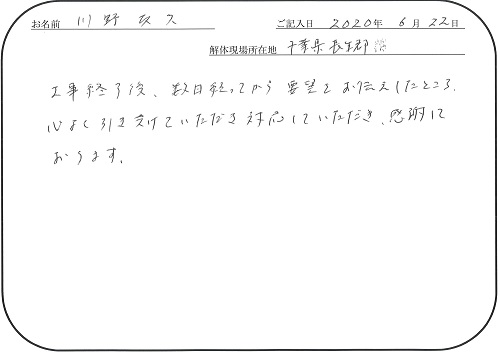 お名前 川野政久 ご記入日 2020年 6月 22日
解体現場所在地 千葉県長生郡
工事終了後、数日経ってから要望をお伝えしたところ、
心よく引き受けていただき対応していただき、感謝して
おります。